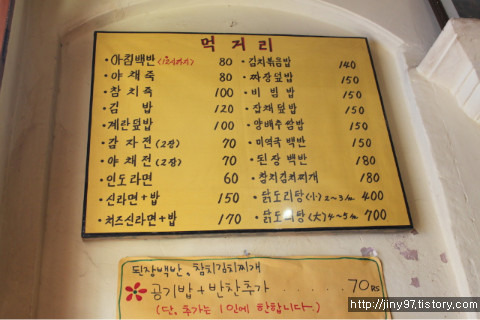 먹거리
·아침백반 80
·야채죽 80
·참치죽 100
·김 밥 120
·계란덮밥 100
·감자전(2장) 70
·야채전(2장) 70
·인도라면 60
·신라면+밥 150
·치즈신라면+밥 170
·김치볶음밥 140
·짜장덮밥 150
·비빔밥 150
·잡채덮밥 150
·양배추쌈밥 150
·미역국백반 150
·된장백반 180
·참치김치찌개 180
·닭도리탕(小)2~3人 400
·닭도리탕(大)4~5人 700
된장백반, 참치김치찌개
공기밥+반찬추가 ..... 70RS
(단, 추가는 1인에 한합니다.)
http://jiny97.tistory.com